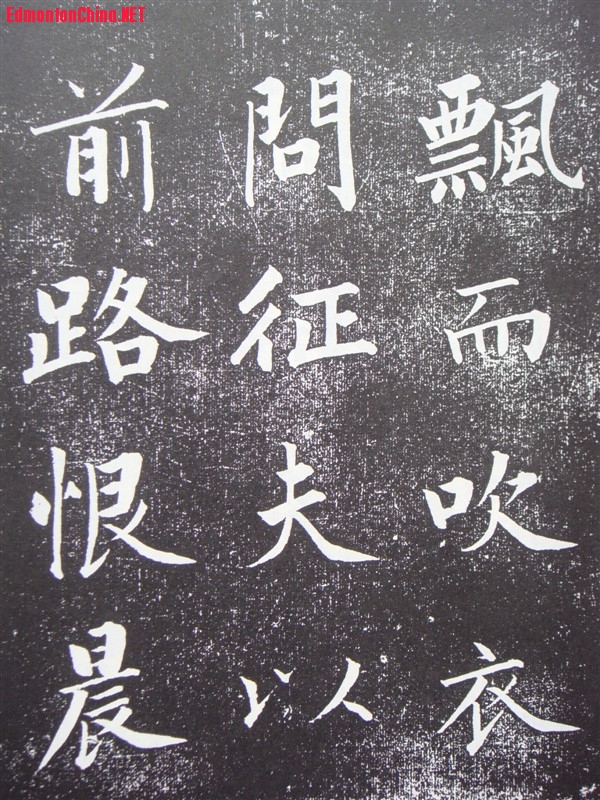 EdmontonChina.NET
飄而吹衣
問征夫以
前路恨晨